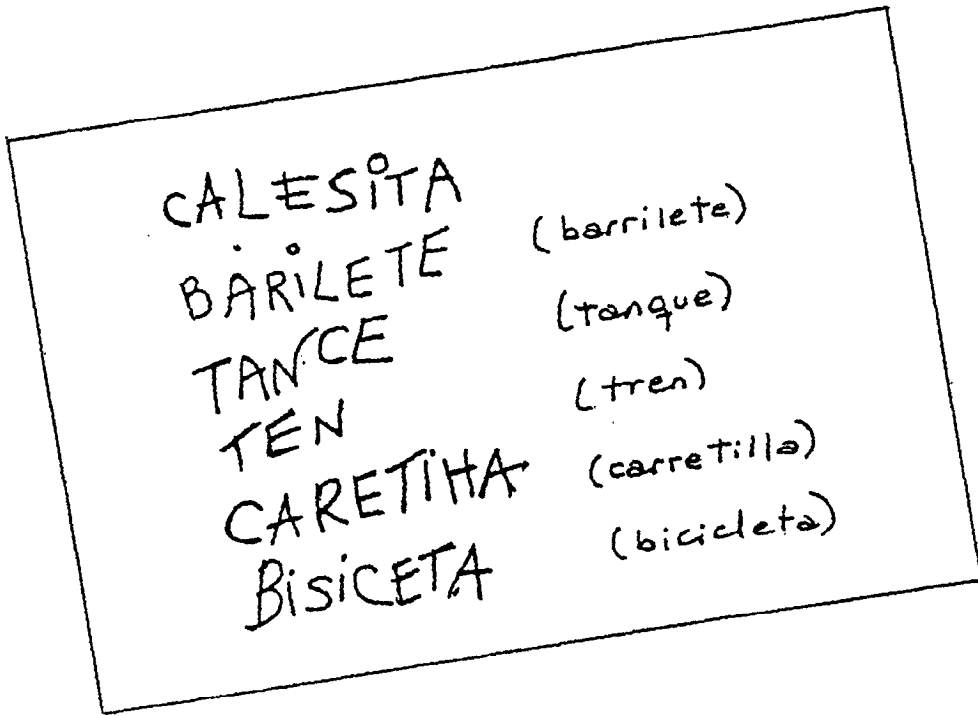 CALESITA
BARILETE (barrilete)
TANCE (tanque)
TEN (tren)
CARETIHA (carretilla)
BISICETA (bicicleta)